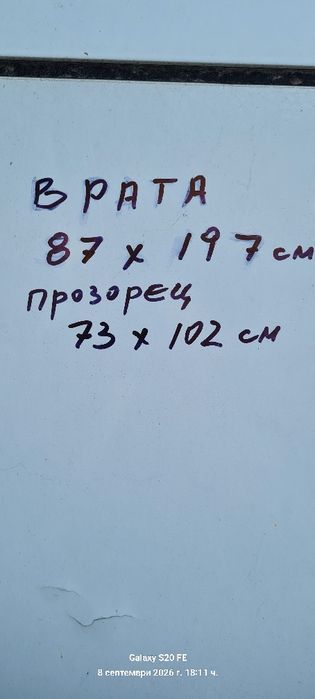 ВРАТА
87 х 197 см
прозорец
73 х 102 см
Galaxy S20 FE
8 септември 2026 г. 18:11 ч.